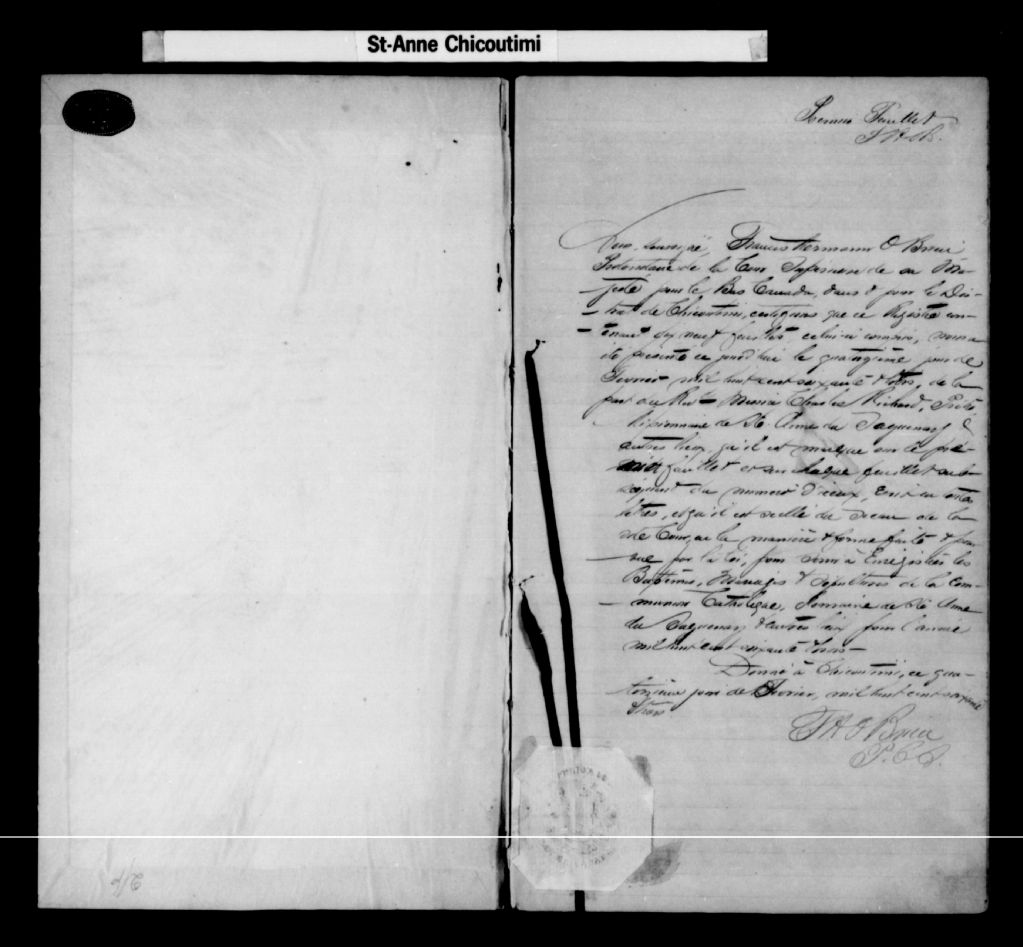 St-Anne Chicoutimi
Premier Feuillet
Nous, soussigné, Francis Hermann O Brien
Protonotaire de la Cour Supérieure de sa Ma-
jesté pour le Bas Canada, dans & pour le Dis-
trict de Chicoutimi, certifions que ce Registre con-
tenant dix neuf feuillets, celui-ci compris, nous a
été présenté ce jourd'hui le quatorzième jour de
Février mil huit cent soixante & trois, de la
part du Rév Messire Charles Richard, Prêtre
Missionnaire de Ste Anne du Saguenay &
autres lieux, qu'il est marqué sur le pre-
mier feuillet et sur chaque feuillet sub-
séquent du numéro d'iceux, écrit en toutes
lettres, et qu'il est scellé du Sceau de la
dte Cour, en la manière & forme faite & pour-
vue par la loi, pour servir à Enregistrer les
Baptêmes, Mariages & Sépultures de la Com-
munion Catholique, de Ste Anne
du Saguenay & autres lieux pour l'année
mil huit cent soixante & trois —
Donné à Chicoutimi, ce qua-
torzième jour de Février, mil huit cent soixante
& trois
F H O Brien
P.C.S.